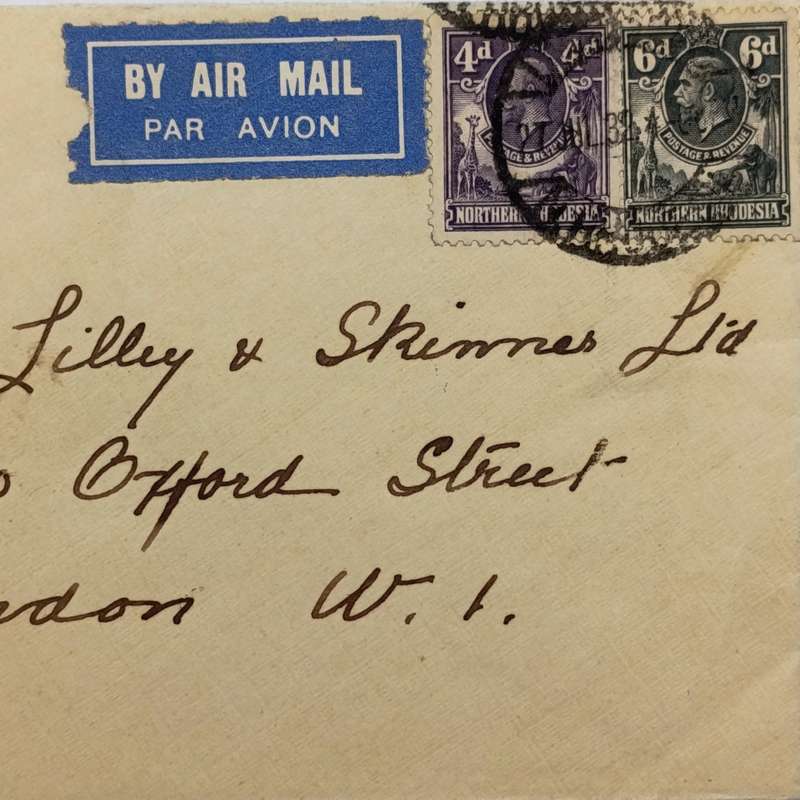 BY AIR MAIL
PAR AVION
4d 4d
POSTAGE & REVENUE
NORTHERN RHODESIA
6d 6d
POSTAGE & REVENUE
NORTHERN RHODESIA
27 JUL.32
Lilley & Skinner Ltd
Oxford Street
ndon W. 1.